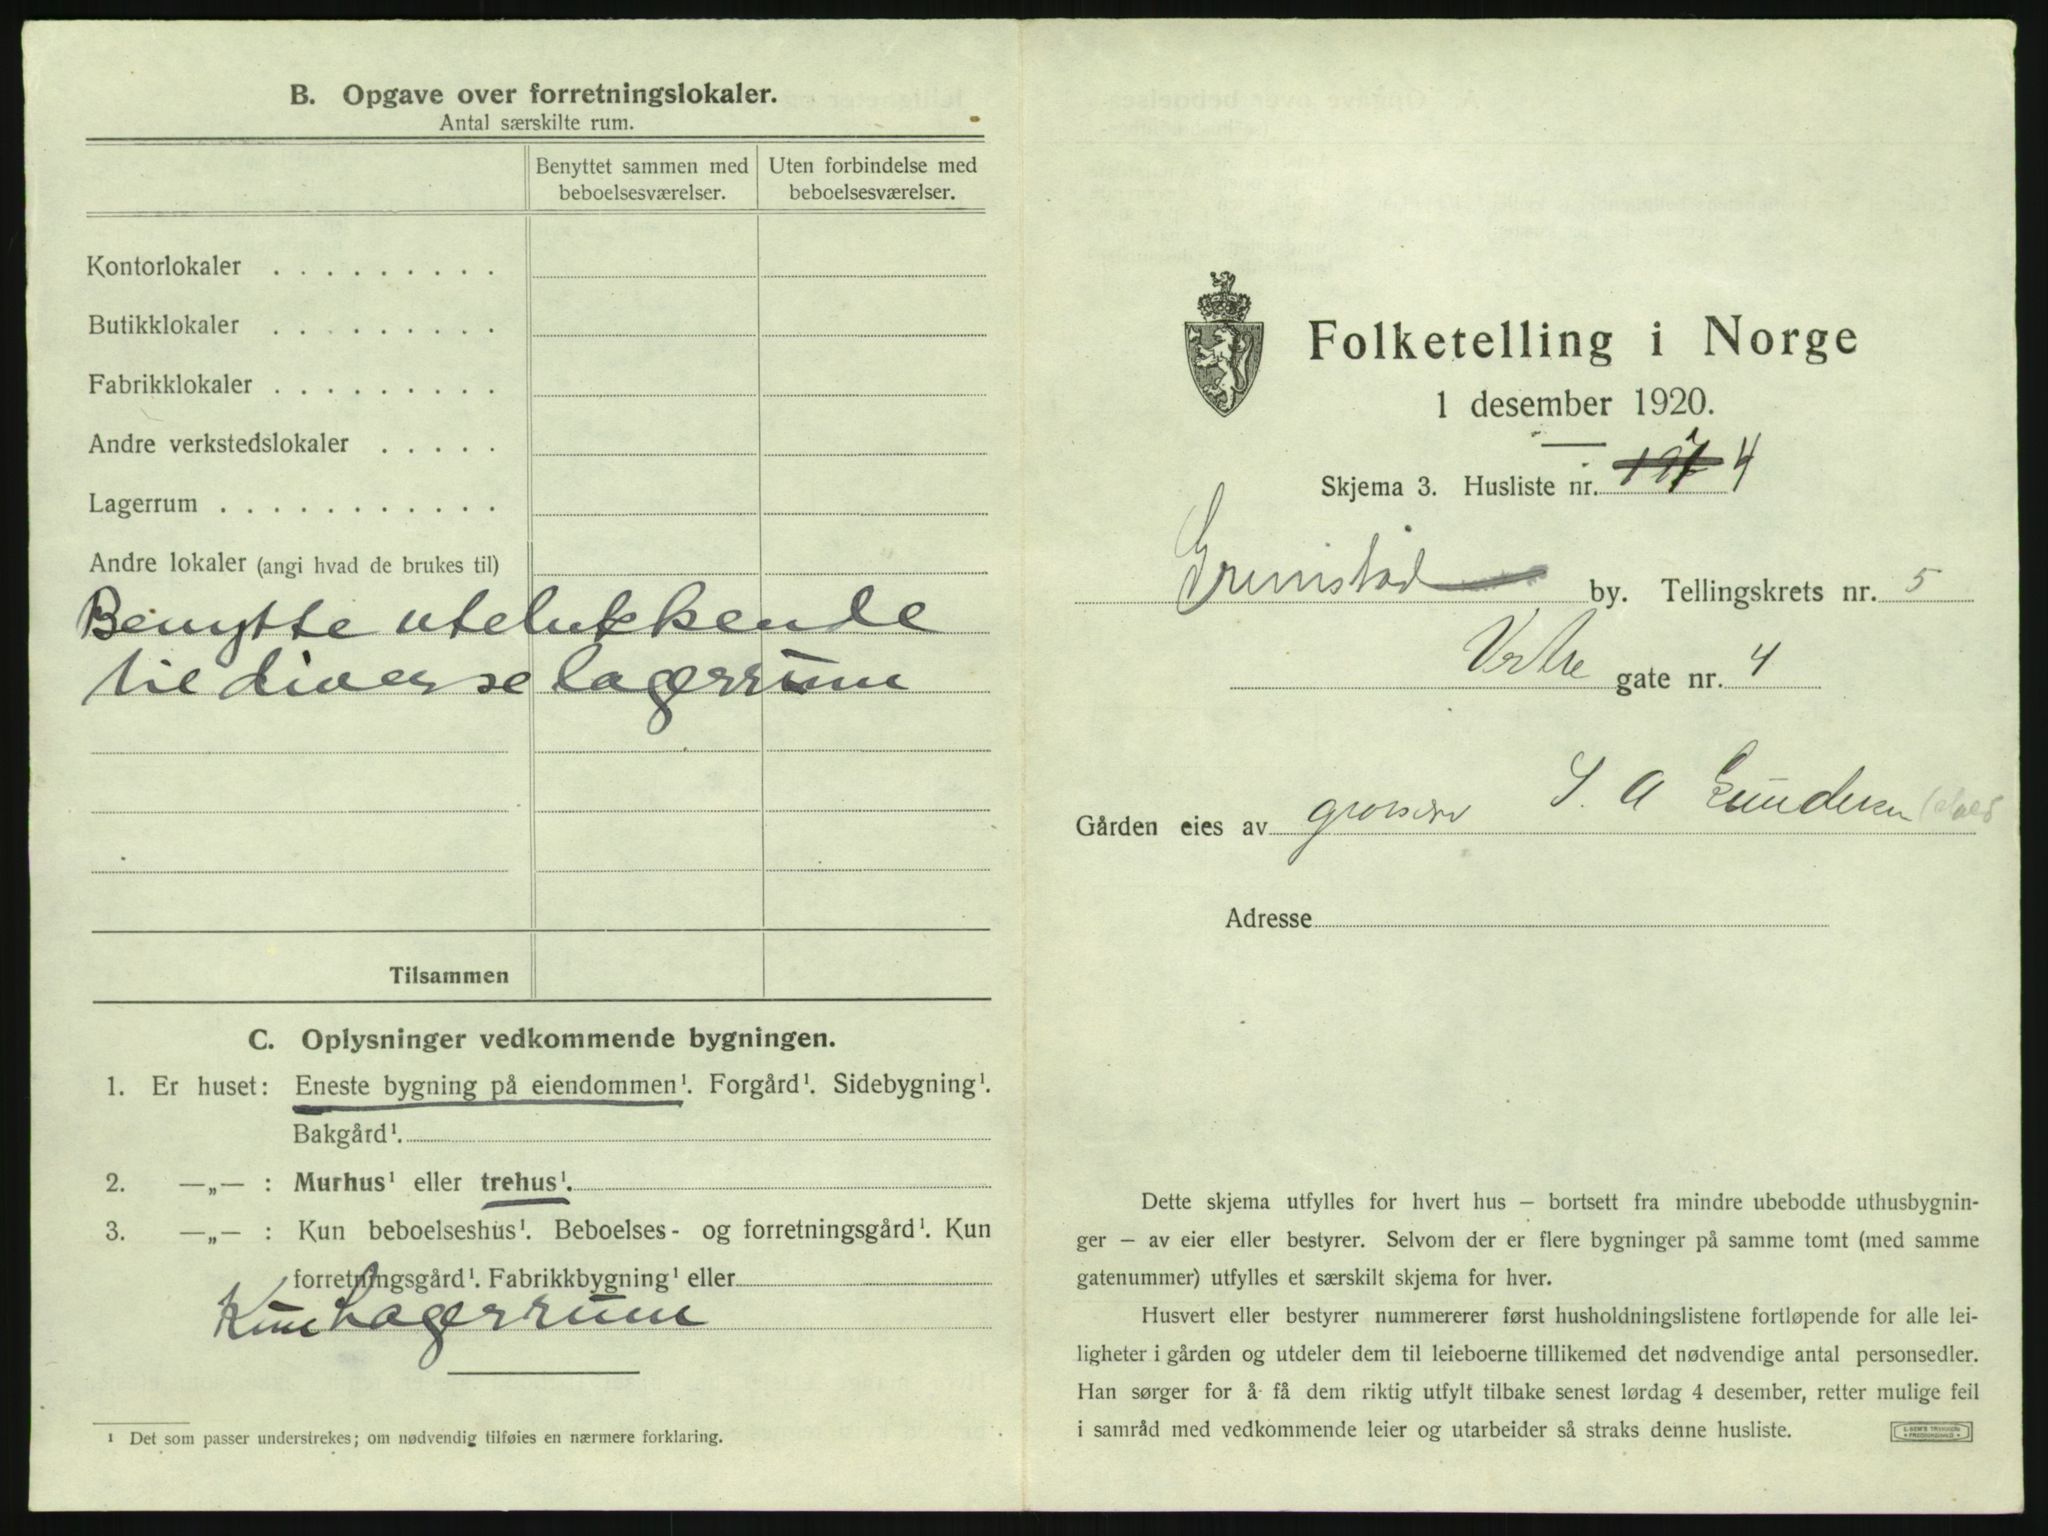 B. Opgave over forretningslokaler.
Antal særskilte rum.
Benyttet sammen med beboelsesværelser.
Uten forbindelse med beboelsesværelser.
Kontorlokaler . . . . . . . . .
Butikklokaler . . . . . . . . .
Fabrikklokaler . . . . . . . . .
Andre verkstedslokaler . . . . .
Lagerrum . . . . . . . . . . . .
Andre lokaler (angi hvad de brukes til)
Benytte utelukkende
til diverse lagerrum
Tilsammen
C. Oplysninger vedkommende bygningen.
1. Er huset: Eneste bygning på eiendommen¹. Forgård¹. Sidebygning¹.
Bakgård¹.
2. —„— : Murhus¹ eller trehus¹.
3. —„— : Kun beboelseshus¹. Beboelses- og forretningsgård¹. Kun
forretningsgård¹. Fabrikkbygning¹ eller
Kun Lagerrum
¹ Det som passer understrekes; om nødvendig tilføies en nærmere forklaring.
Folketelling i Norge
1 desember 1920.
Skjema 3. Husliste nr. 4
Grimstad by. Tellingskrets nr. 5
Vestre gate nr. 4
Gården eies av grosserer S. A Gundersen
Adresse
Dette skjema utfylles for hvert hus — bortsett fra mindre ubebodde uthusbygnin-
ger — av eier eller bestyrer. Selvom der er flere bygninger på samme tomt (med samme
gatenummer) utfylles et særskilt skjema for hver.
Husvert eller bestyrer nummererer først husholdningslistene fortløpende for alle lei-
ligheter i gården og utdeler dem til leieboerne tillikemed det nødvendige antal personsedler.
Han sørger for å få dem riktig utfylt tilbake senest lørdag 4 desember, retter mulige feil
i samråd med vedkommende leier og utarbeider så straks denne husliste.